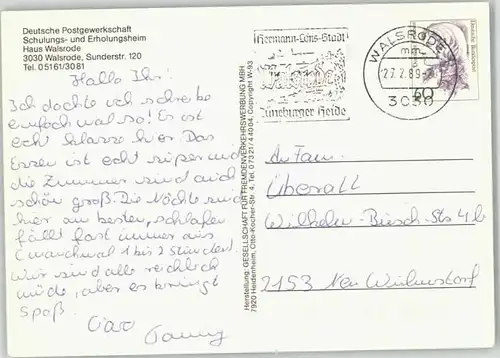 Deutsche Postgewerkschaft
Schulungs- und Erholungsheim
Haus Walsrode
3030 Walsrode, Sunderstr. 120
Tel. 05161/3081
Hallo Ihr!
Ich dachte ich schreibe
einfach mal so! Es ist
echt klasse hier. Das
Essen ist echt super und
die Zimmer sind auch
schön groß. Die Nächte sind
hier am besten, schlafen
fällt fast immer aus
(manchmal 1 bis 2 Stunden).
Wir sind alle reichlich
müde, aber es bringt
Spaß.
Ciao
Herstellung: GESELLSCHAFT FÜR FREMDENVERKEHRSWERBUNG MBH
7920 Heidenheim, Otto-Kocher-Str. 4, Tel. 07321/44004, Copyright W-93
Hermann-Löns-Stadt
Walsrode
Lüneburger Heide
WALSRODE
27.7.89
3030
Deutsche Bundespost
60
An Fam.
Überall
Wilhelm-Busch-Str. 4b
2153 Neu Wulmstorf